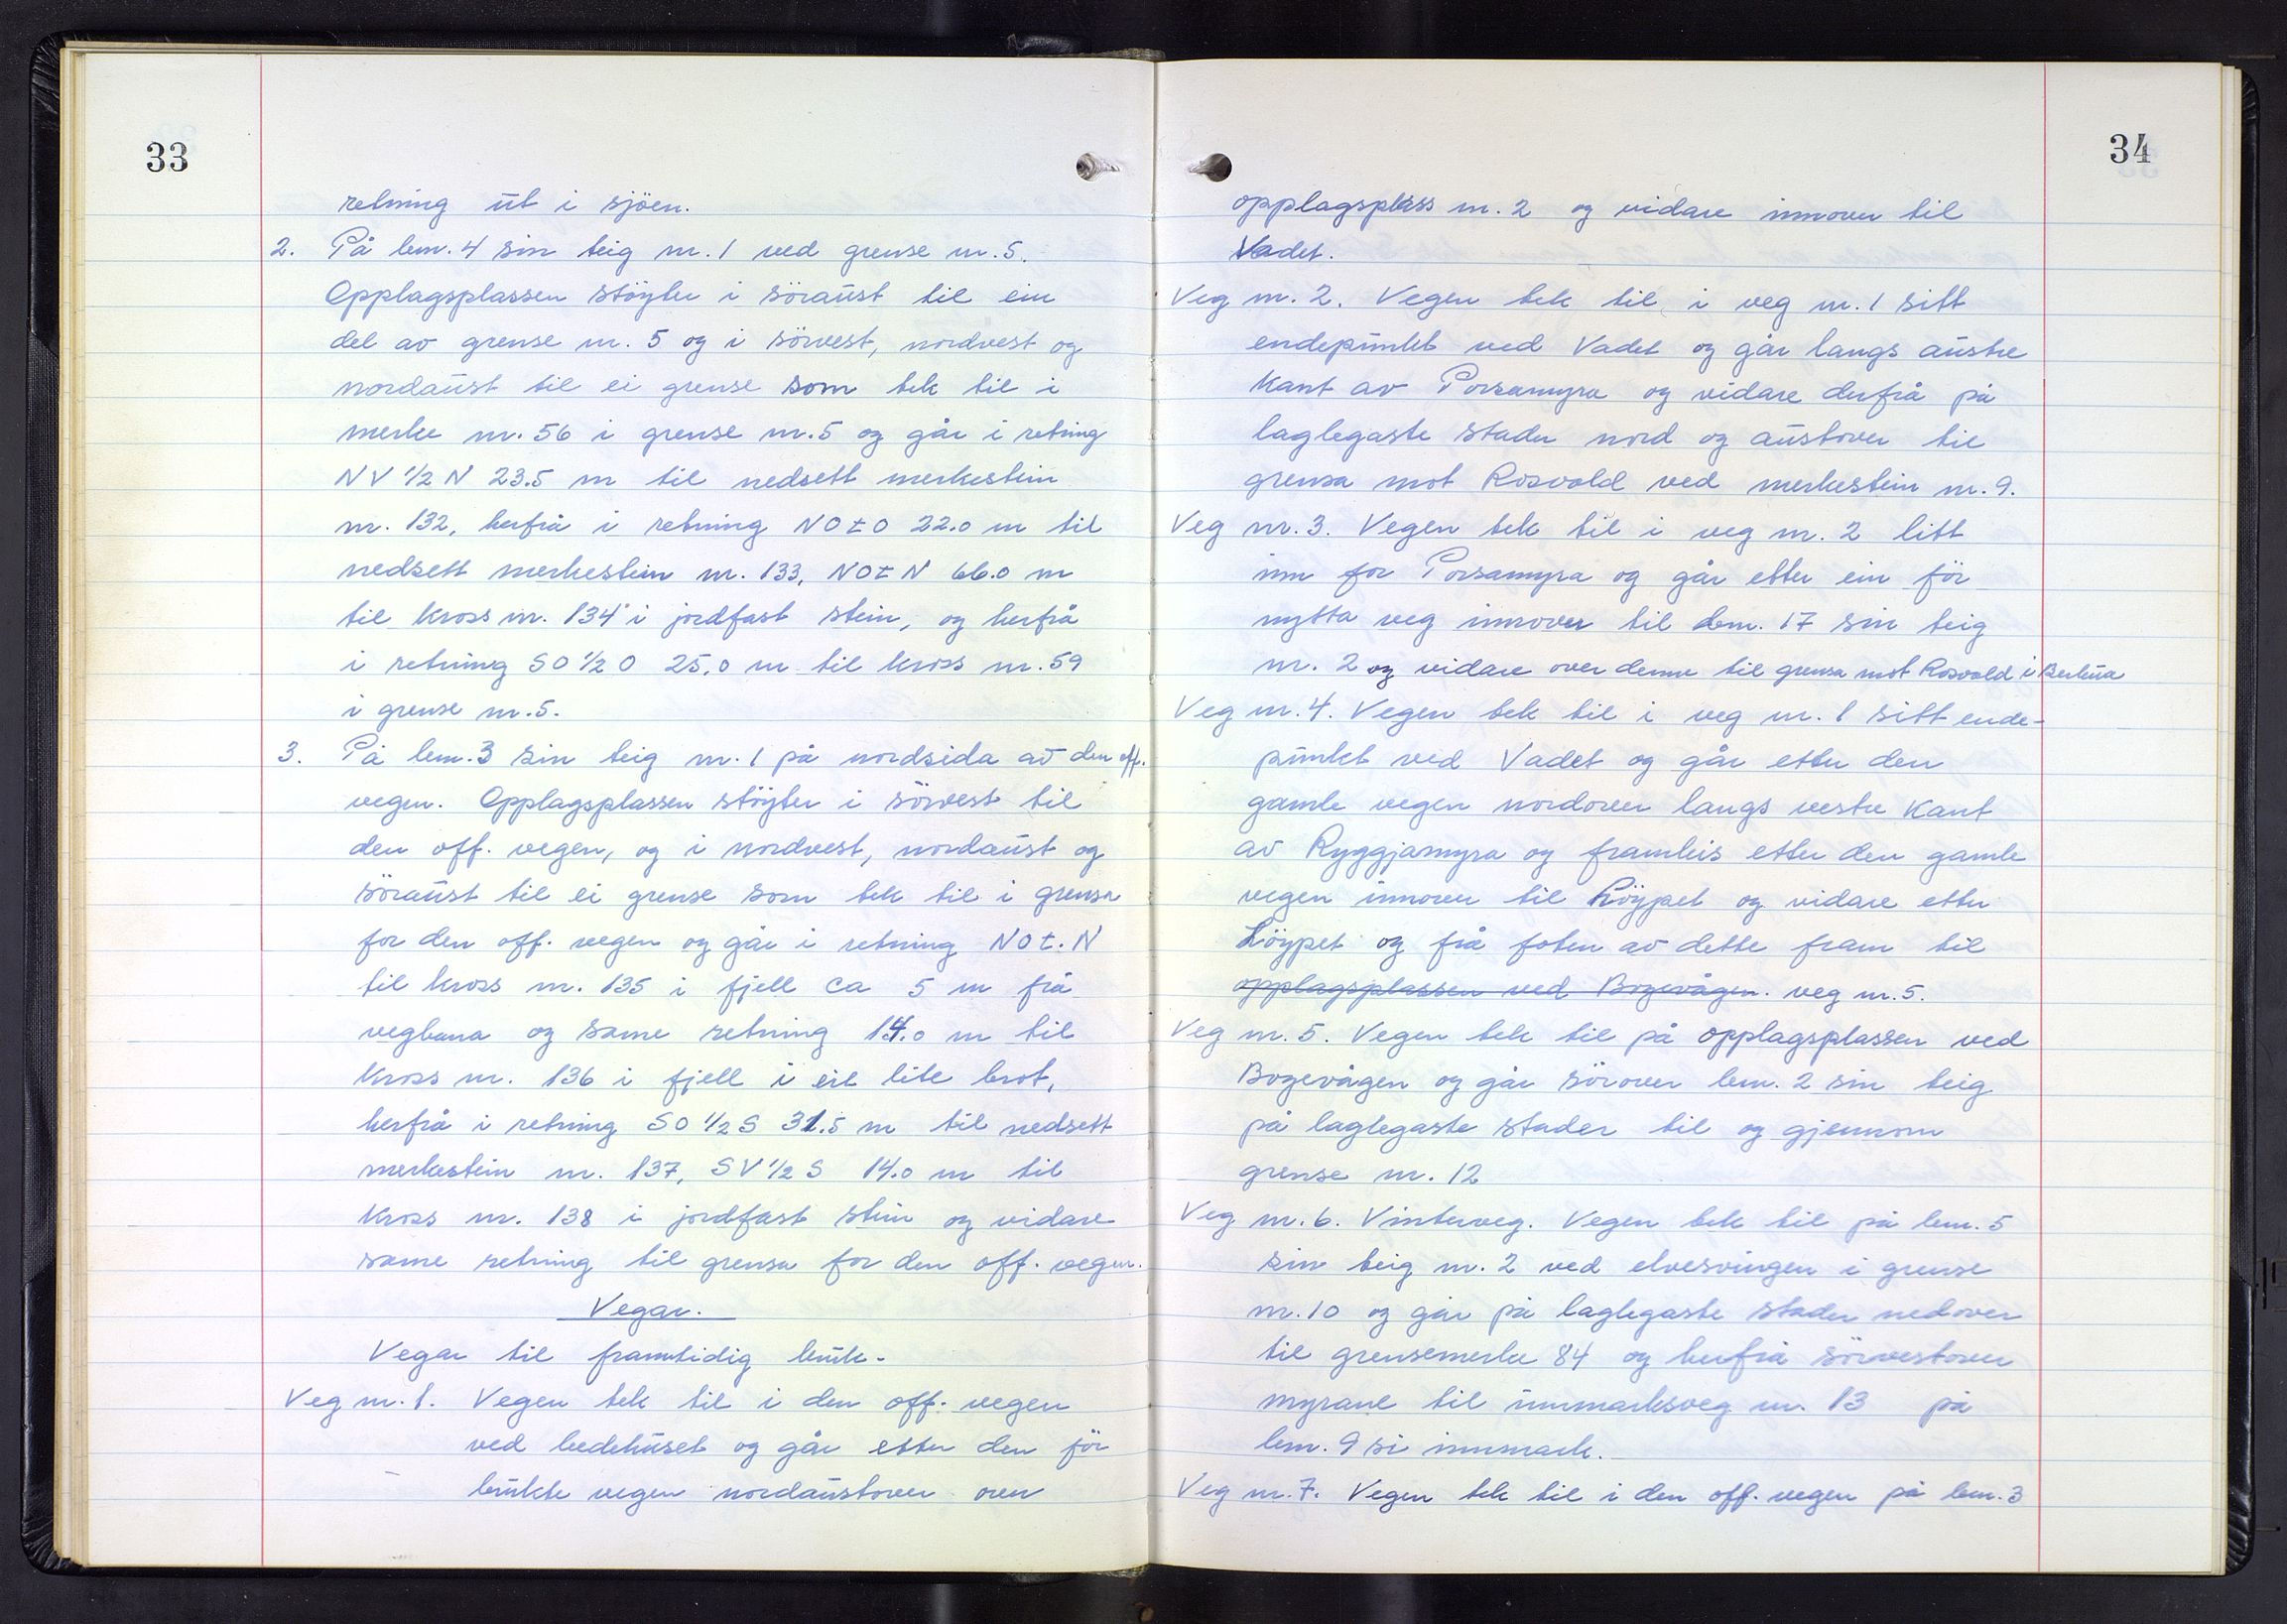 33
retning ut i sjöen.
2. På bnr. 4 sin teig nr. 1 ved grense nr. 5.
Opplagsplassen støyter i söraust til ein
del av grense nr. 5 og i sörvest, nordvest og
nordaust til ei grense som tek til i
merke nr. 56 i grense nr. 5 og går i retning
NV 1/2 N 23.5 m til nedsett merkestein
nr. 132, herfrå i retning NOtO 22.0 m til
nedsett merkestein nr. 133, NOtN 66.0 m
til kross nr. 134 i jordfast stein, og herfrå
i retning SO 1/2 O 25.0 m til kross nr. 59
i grense nr. 5.
3. På bnr. 3 sin teig nr. 1 på nordsida av den off.
vegen. Opplagsplassen støyter i sörvest til
den off. vegen, og i nordvest, nordaust og
söraust til ei grense som tek til i grensa
for den off. vegen og går i retning NOt.N
til kross nr. 135 i fjell ca 5 m frå
vegbana og same retning 14.0 m til
kross nr. 136 i fjell i eit lite brot,
herfrå i retning SO 1/2 S 31.5 m til nedsett
merkestein nr. 137, SV 1/2 S 14.0 m til
kross nr. 138 i jordfast stein og vidare
same retning til grensa for den off. vegen.
Vegar.
Vegar til framtidig bruk.
Veg nr. 1. Vegen tek til i den off. vegen
ved bedehuset og går etter den för
brukte vegen nordaustover over
34
opplagsplass nr. 2 og vidare innover til
Vadet.
Veg nr. 2. Vegen tek til i veg nr. 1 sitt
endepunkt ved Vadet og går langs austre
kant av Porsamyra og vidare derfrå på
laglegaste stader nord og austover til
grensa mot Rosvold ved merkestein nr. 9.
Veg nr. 3. Vegen tek til i veg nr. 2 litt
inn for Porsamyra og går etter ein för
nytta veg innover til bnr. 17 sin teig
nr. 2 og vidare over denne til grensa mot Rosvold i
Veg nr. 4. Vegen tek til i veg nr. 1 sitt ende-
punkt ved Vadet og går etter den
gamle vegen nordover langs vestre kant
av Ryggjamyra og framleis etter den gamle
vegen innover til Löypet og vidare etter
Löypet og frå foten av dette fram til
opplagsplassen ved Bogevågen. veg nr. 5.
Veg nr. 5. Vegen tek til på opplagsplassen ved
Bogevågen og går sörover bnr. 2 sin teig
på laglegaste stader til og gjennom
grense nr. 12
Veg nr. 6. Vinterveg. Vegen tek til på bnr. 5
sin teig nr. 2 ved elvesvingen i grense
nr. 10 og går på laglegaste stader nedover
til grensemerke 84 og herfrå sörvestover
myrane til innmarksveg nr. 13 på
bnr. 9 si innmark.
Veg nr. 7. Vegen tek til i den off. vegen på bnr. 3